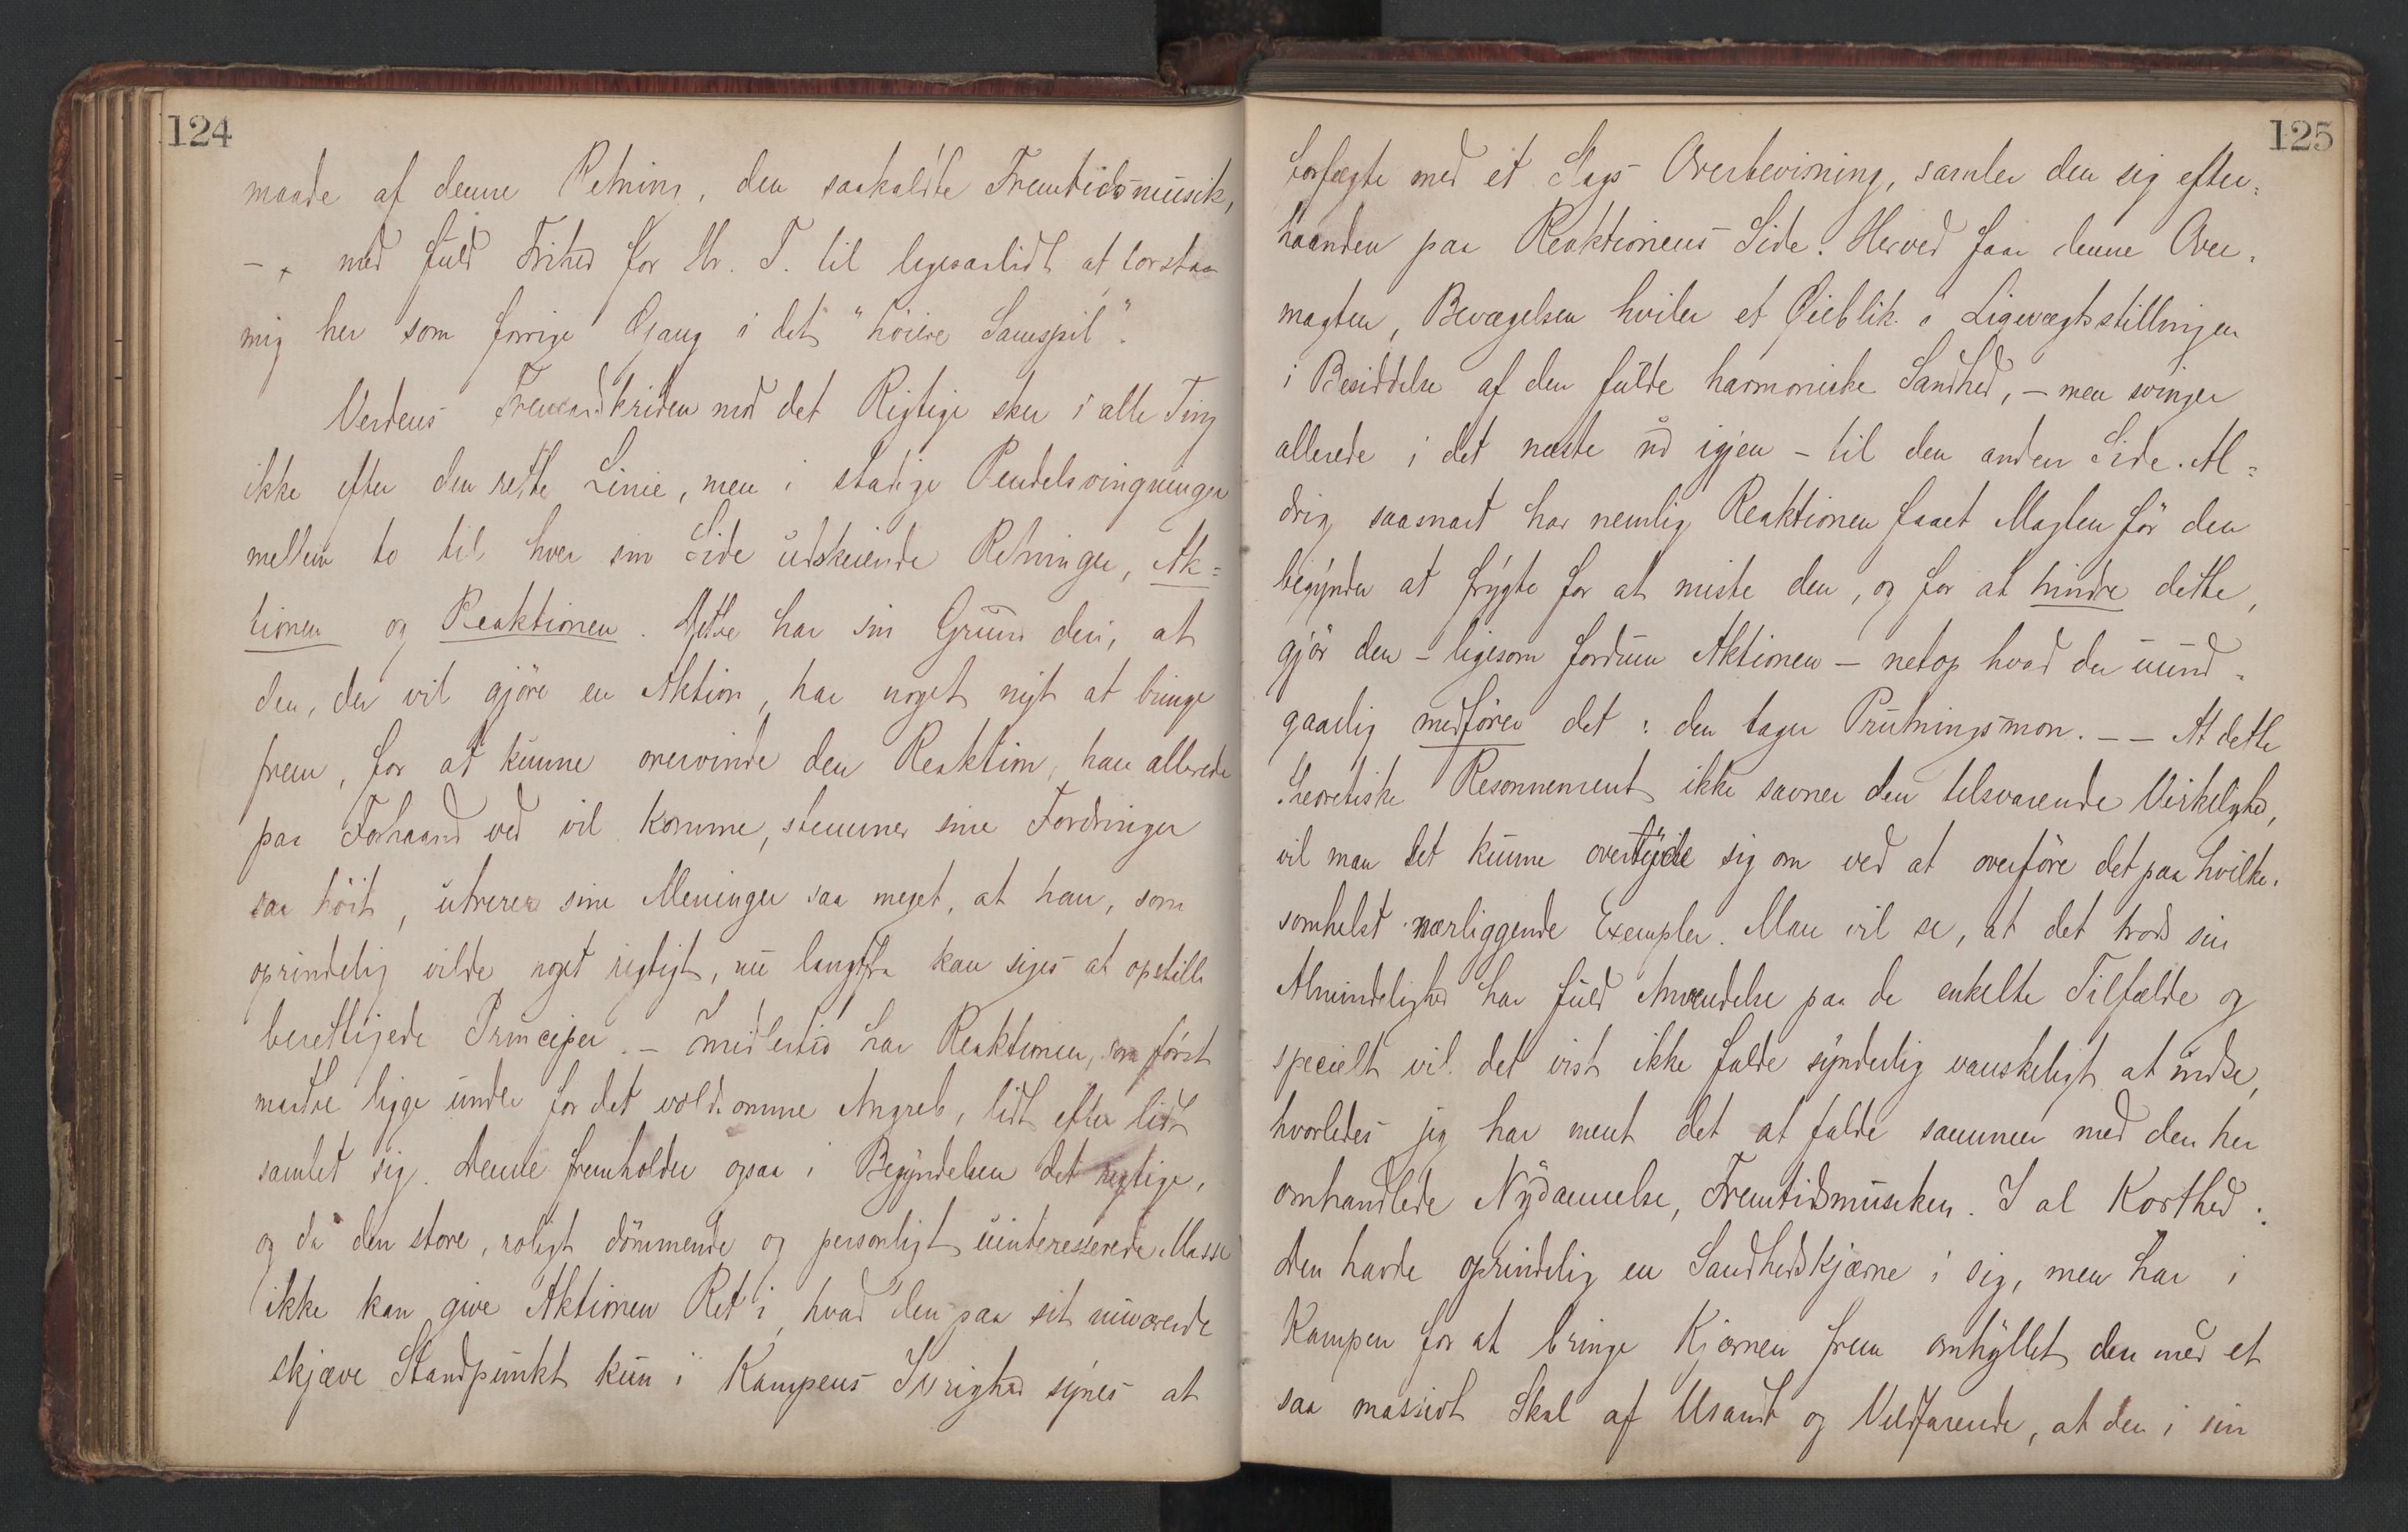 124
maade af denne Retning, den saakaldte Fremtidsmusik,
– , med fuld Frihed for Hr. T. til ligesaalidt at forstaa
mig her som forrige Gang i det "høiere Samspil".
Verdens Fremadskriden mod det Rigtige sker i alle Ting
ikke efter den rette Linie, men i stadige Pendelsvingninger
mellem to til hver sin Side udskeiende Retninger, Ak=
tionen og Reaktionen. Dette har sin Grund deri, at
den, der vil gjöre en Aktion, har noget nyt at bringe
frem, for at kunne overvinde den Reaktion, han allerede
paa Forhaand ved vil komme, stemmer sine Fordringer
saa höit, utrerer sine Meninger saa meget, at han, som
oprindelig vilde noget rigtigt, nu langtfra kan siges at opstille
berettigede Principer. – Imidlertid har Reaktionen, som först
maatte ligge under for det voldsomme Angreb, lidt efter lidt
samlet sig. Denne fremholder ogsaa i Begyndelsen det rigtige,
og da den store, roligt dömmende og personligt uinteresserede Masse
ikke kan give Aktionen Ret i, hvad den paa sit nuværende
skjæve Standpunkt kun i Kampens Ivrighed synes at
125
forfægte med et Slags Overbevisning, samler den sig efter=
haanden paa Reaktionens Side. Herved faar denne Over=
magten, Bevægelsen hviler et Øieblik i Ligevægtsstillingen
i Besiddelse af den fulde harmoniske Sandhed, – men svinger
allerede i det næste ud igjen – til den anden Side. Al=
drig saasnart har nemlig Reaktionen faaet Magten för den
begynder at frygte for at miste den, og for at hindre dette,
gjör den – ligesom fordum Aktionen – netop hvad der uund=
gaaelig medförer det: den tager Prutningsmon. – – At dette
theoretiske Resonnement ikke savner den tilsvarende Virkelighed,
vil man let kunne overtyde sig om ved at overföre det paa hvilke=
somhelst nærliggende Exempler. Man vil se, at det trods sin
Almindelighed har fuld Anvendelse paa de enkelte Tilfælde og
specielt vil det vist ikke falde synderlig vanskeligt at indse,
hvorledes jeg har ment det at falde sammen med den her
omhandlede Nydannelse, Fremtidsmusiken. I al Korthed:
den havde oprindelig en Sandhedskjærne i sig, men har i
Kampen for at bringe Kjærnen frem omhyllet den med et
saa massivt Skal af Usandt og Vildfarende, at den i sin